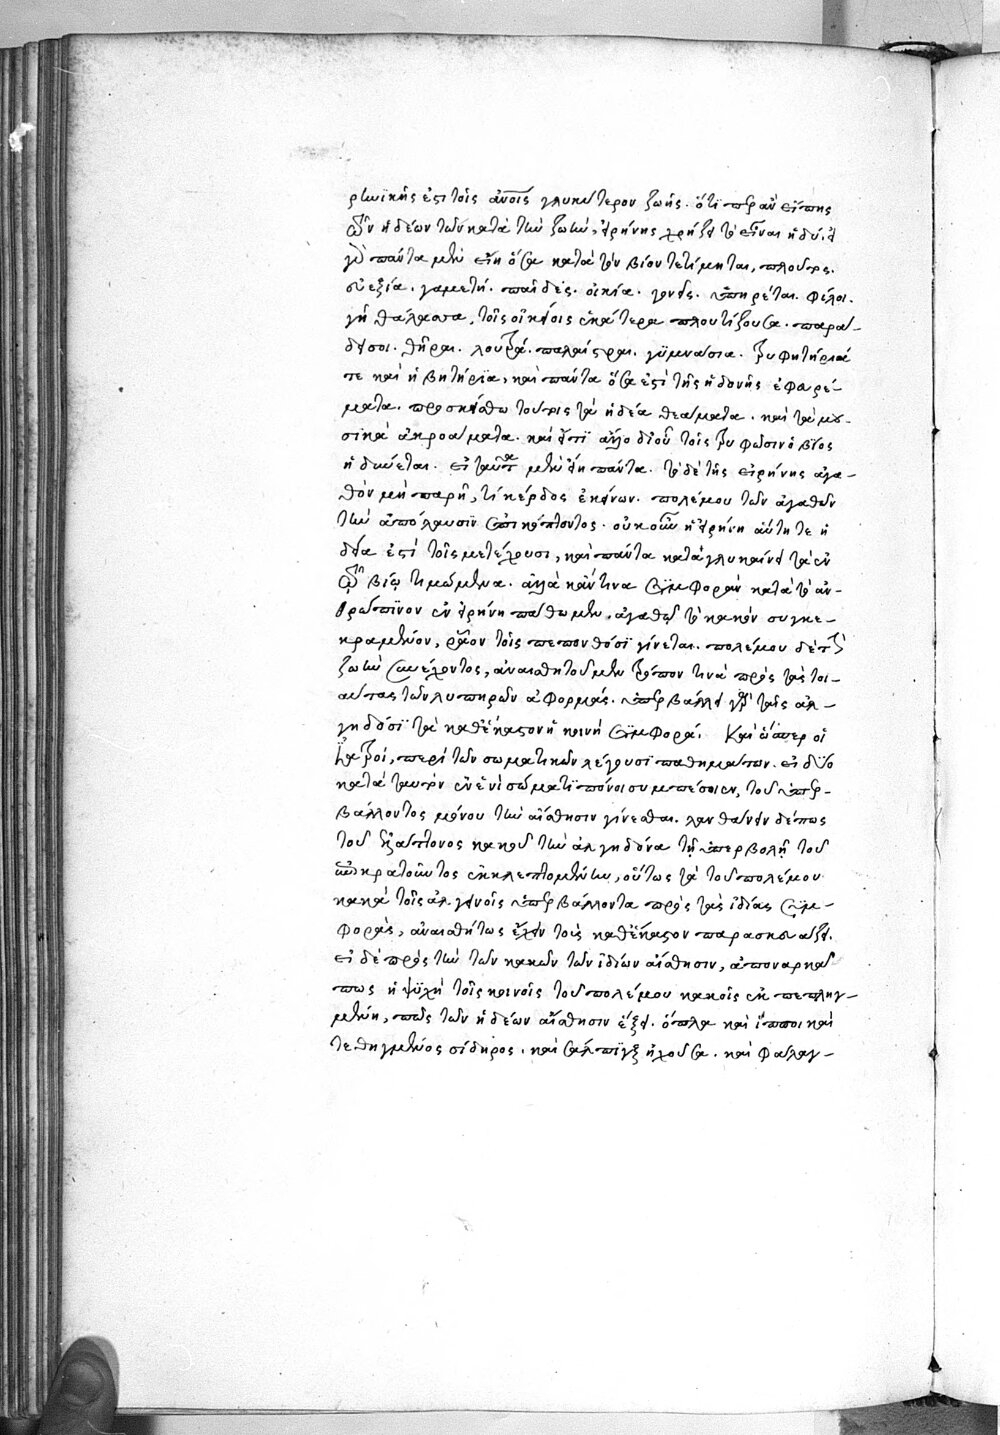 ρηνικῆς ἐστὶ τοῖς ἀνοις γλυκύτερον ζωῆς. ὅτι περ ἂν εἴπης
τῶν ἡδέων τῶν κατὰ τὴν ζωὴν, εἰρήνης χρήζει τὸ εἶναι ἡδύ. εἰ
γὰρ πάντα μὲν εἴη ὅσα κατὰ τὸν βίον τετίμηται, πλοῦτος.
εὐεξία. γαμετή. παῖδες. οἰκία. γονεῖς. ὑπηρέται. φίλοι.
γῆ θάλασσα, τοῖς οἰκείοις ἑκάτερα πλουτίζουσα. παρά-
δεισοι. θῆραι. λουτρά. παλαίστραι. γϋμνάσια. τρυφητήριά
τε καὶ ἡβητήρϊα, καὶ πάντα ὅσα ἐστὶ τῆς ἡδονῆς ἐφευρέ-
ματα. προσκείσθω τούτοις τὰ ἡδέα θεάματα. καὶ τὰ μου-
σϊκὰ ἀκροάματα. καὶ εἴ τϊ ἄλλο δι' οὗ τοῖς τρυφῶσιν ὁ βίος
ἡδύνεται. εἰ ταῦτα μὲν εἴη πάντα. τὸ δὲ τῆς εἰρήνης ἀγα-
θὸν μὴ παρῆ, τί κέρδος ἐκείνων. πολέμου τῶν ἀγαθῶν
τὴν ἀπόλαυσϊν ἐπικόπτοντος. οὐκοῦν ἡ εἰρήνη αὐτή τε ἡ
δεῖα ἐστὶ τοῖς μετέχουσι, καὶ πάντα καταγλυκαίνει τὰ ἐν
τῶ βίω τιμώμενα. ἀλλὰ κἄν τινα συμφορὰν κατὰ τὸ ἀν-
θρώπϊνον ἐν εἰρήνη πάθωμεν, ἀγαθῶ τὸ κακὸν συγκε-
κραμένον, ρᾷον τοῖς πεπονθόσϊ γίνεται. πολέμου δὲ τὴν
ζωὴν συνέχοντος, ἀναισθήτου μὲν τρόπον τινὰ πρὸς τὰς τοι-
αύτας τῶν λυπηρῶν ἀφορμάς. ὑπερβάλλει γὰρ ταῖς ἀλ-
γηδόσϊ τὰ καθέκαστον ἡ κοινὴ συμφορά. Καὶ ὥσπερ οἱ
ἰατροὶ, περὶ τῶν σωματικῶν λέγουσϊ παθημάτων. εἰ δϋο
κατὰ ταυτὸν ἐν ἑνὶ σώματϊ πόνοι συμπέσοιεν, τοῦ ὑπερ-
βάλλοντος μόνου τὴν αἴσθησιν γίνεσθαι. λανθάνειν δέ πως
τοῦ ἐλάττονος κακοῦ τὴν ἀλγηδόνα τῆ ὑπερβολῆ τοῦ
ἐπικρατοῦντος ἐκκλεπτομένην, οὕτως τὰ τοῦ πολέμου
κακὰ τοῖς ἀλγεινοῖς ὑπερβάλλοντα πρὸς τὰς ἰδίας συμ-
φορὰς, ἀναισθήτως ἔχειν τοὺς καθέκαστον παρασκευάζει.
εἰ δὲ πρὸς τὴν τῶν κακῶν τῶν ϊδίων αἴσθησιν, ἀποναρκᾶ
πως ἡ ψϋχὴ τοῖς κοινοῖς τοῦ πολέμου κακοῖς ἐκπεπληγ-
μένη, πῶς τῶν ἡδέων αἴσθησιν ἕξει. ὅπλα καὶ ἵπποι καὶ
τεθηγμένος σίδηρος, καὶ σάλπϊγξ ἠχοῦσα. καὶ φάλαγ-